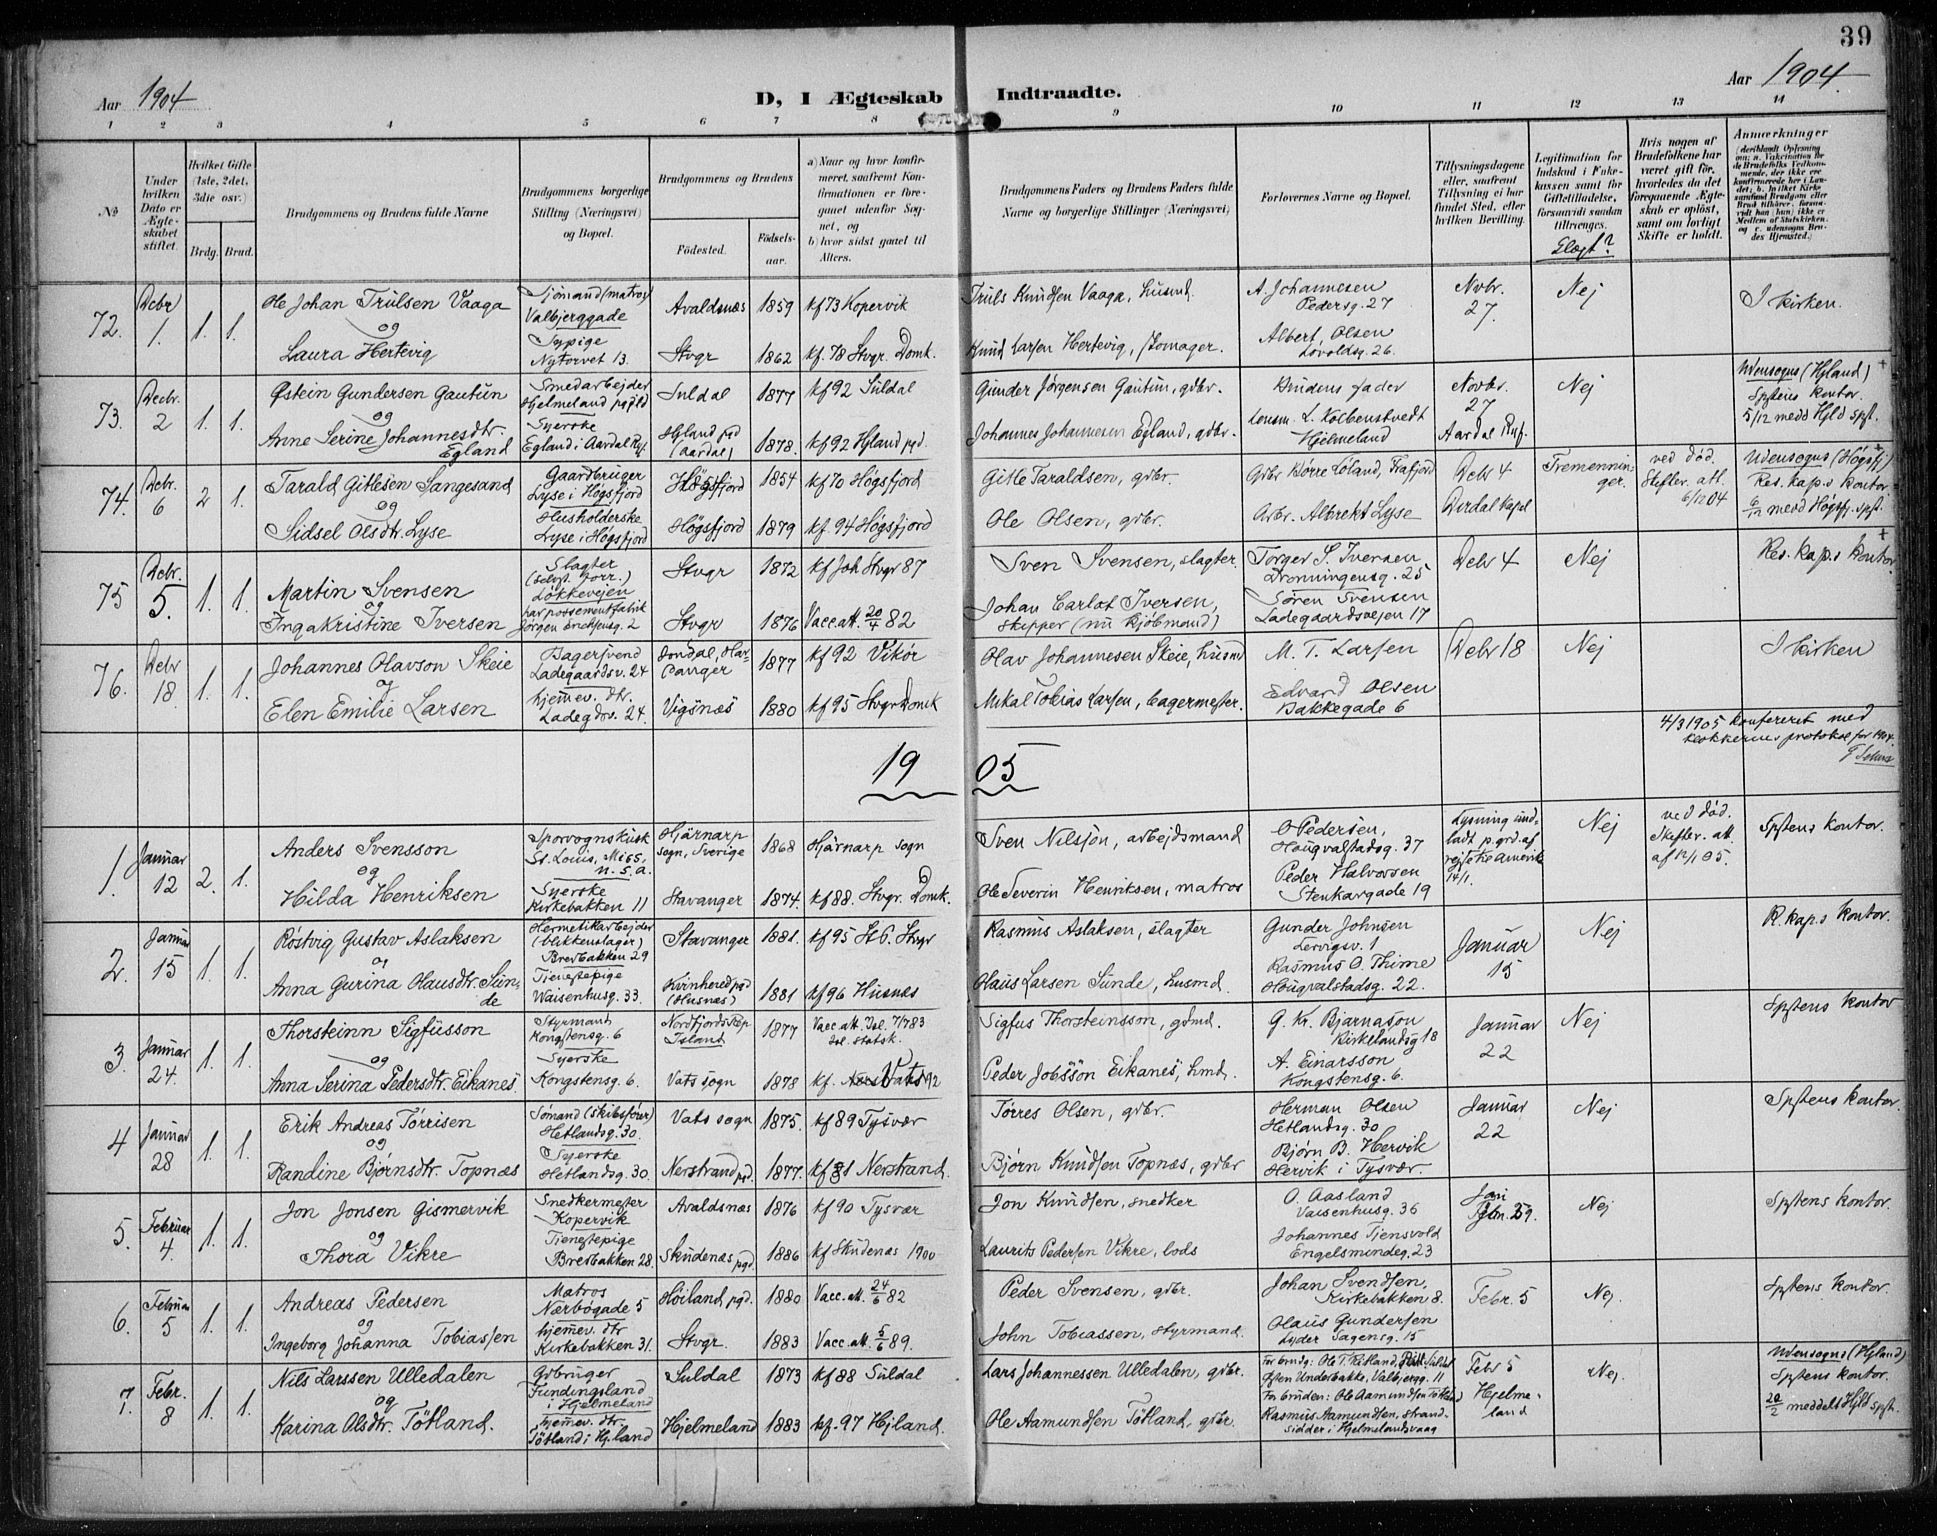 39
Aar 1904
D, I Ægteskab Indtraadte.
Aar 1904
1 2 3 4 5 6 7 8 9 10 11 12 13 14
No
Under hvilken Dato er Ægteskabet stiftet.
Hvilket Gifte (1ste, 2det, 3die osv.)
Brdg. Brud.
Brudgommens og Brudens fulde Navne
Brudgommens borgerlige Stilling (Næringsvei) og Bopæl.
Brudgommens og Brudens
Födested. Födsels-aar.
a) Naar og hvor konfirmeret, saafremt Konfirmationen er foregaaet udenfor Sognet, og
b) hvor sidst gaaet til Alters.
Brudgommens Faders og Brudens Faders fulde Navne og borgerlige Stillinger (Næringsvei)
Forlovernes Navne og Bopæl.
Tillysningsdagene eller, saafremt Tillysning ei har fundet Sted, efter hvilken Bevilling.
Legitimation for Indskud i Enkekassen samt for Giftetilladelse, forsaavidt saadan tiltrænges.
Slægt?
Hvis nogen af Brudefolkene har været gift för, hvorledes da det foregaaende Ægteskab er oplöst, samt om lovligt Skifte er holdt.
Anmærkninger
72. Decbr 1. 1. 1.
Ole Johan Trulsen Vaaga
og
Laura Hertevig
Sjömand (matros)
Valbjerggade
Sypige
Nytorvet 13.
Avaldsnæs 1859 kf 73 Kopervik
Stvgr 1862 kf. 78 Stvgr. Domk.
Truls Knudsen Vaaga, husmd.
Knud Larsen Hertevig, skomager.
A. Johannesen
Pedersg. 27
Albert Olsen
Lovoldsg. 26.
Nvbr. 27.
Nej
I kirken.
73. Decbr. 2 1. 1.
Østein Gundersen Gautun
og
Anne Serine Johannesdtr. Egland
Smedarbejder
Hjelmeland pgjld
Syerske
Egland i Aardal Ryf.
Suldal 1877 kf 92 Suldal
Hjland pgd (Aardal) 1878. kf 92 Hjland pgd.
Gunder Jørgensen Gautun, gdbr.
Johannes Johannesen Egland, gdbr.
Brudens fader
Lensm. L. Kolbenstvedt
Hjelmeland
Novbr. 27
Aardal Ryf.
Nej
Udensogns (Hjland) +
Spstens kontor.
5/12 medd Hjld spst.
74. Decbr. 6 2 1.
Tarald Gitlesen Sangesand
og
Sidsel Olsdtr. Lyse
Gaardbruger
Lyse i Høgsfjord
Husholderske
Lyse i Høgsfjord
Høgsfjord 1854 kf 70 Högsfjord
Högsfjord 1879 kf. 94 Högsfjord
Gitle Taraldsen, gdbr.
Ole Olsen, gdbr.
Gdbr Børre Løland, Frafjord
Gdbr. Albrekt Lyse
Decbr 4
Dirdal kapel
Fremenninger.
ved død.
Skiftev. att.
6/12 04
Udensogns (Høgsfj.) +
Res. kap.s kontor
6/12 medd Högsfj. spst.
75 Decbr. 5. 1. 1.
Martin Svensen
og
Inga Kristine Iversen
Slagter
(selvst. forr.)
Løkkevejen
har possementfabrik
Jörgen Erichsensg. 2
Stvgr 1872 kf Joh Stvgr 87
Stvgr 1876 Vacc att. 20/4 82
Sven Svensen, slagter
Johan Carlot Iversen,
skipper (nu kjøbmand)
Torger S. Iversen
Dronningensg. 25
Søren Svensen
Ladegaardsvejen 17
Decbr 4
Nej
Res. kap.s kontor +
76. Decbr 18. 1. 1.
Johannes Olavson Skeie
og
Elen Emilie Larsen
Bagersvend
Ladegaardsv. 24
hjemmev. dtr.
Ladegdsv. 24.
Jondal, Hardanger 1877 kf 92 Vikör
Vigsnæs 1880 kf 95 Stvgr Domk
Olav Johannesen Skeie, husmd
Mikal Tobias Larsen, bagermester.
M. T. Larsen
Edvard Olsen
Bakkegade 6
Decbr 18
Nej
I kirken
4/3 1905 konfereret med
klokkerens protokol for 1904.
1905
1. Januar 12 2. 1.
Anders Svensson
og
Hilda Henriksen
Sporvognskusk
St. Louis, Miss,
N. S. A.
Syerske
Kirkebakken 11
Hjärnarp sogn, Sverige 1868 Hjärnarp sogn
Stavanger 1874. kf 88. Stvgr. Domk.
Sven Nilsson, arbejdsmand
Ole Severin Henriksen, matros
O Pedersen,
Hougvaldstadsg. 37
Peder Halvorsen
Stenkargade 19
Lysning undladt p. grd. af rejse til Amerika
14/1.
Nej
ved død.
Skiftev. att
af 12/1 05.
Spstens kontor.
2. Januar 15 1. 1.
Røstvig Gustav Aslaksen
og
Anna Gurina Olausdtr. Sunde
Hermetikarbejder
(blikkenslager)
Bredbakken 29
Tjenestepige
Waisenhusg. 33.
Stavanger 1881. kf 95 St P. Stvgr
Kvinhered pgd (Husnæs) 1881 kf 96 Husnæs
Rasmus Aslaksen, slagter
Olaus Larsen Sunde, husmd.
Gunder Johnsen
Lervigsv. 1
Rasmus O. Thime
Hougvaldstadsg. 22.
Januar 15
Nej
R. kap.s kontor.
3. Januar 24. 1. 1.
Thorsteinn Sigfússon
og
Anna Serina Pedersdtr. Eikanes
Styrmand
Kongstensg. 6
Syerske
Kongstensg. 6.
Nordfjords
Island 1877 Vacc att. Isl. 7/7 83
Isl. statsk.
Vats sogn 1878 kf. Vats 92
Sigfus Thorsteinsson, gdmd.
Peder Jobsson Eikanes, hmd.
G. Kr. Bjarnason
Kirkelandsg 18
A. Einarsson
Kongstensg. 6.
Januar 22
Nej
Spstens kontor
4 Januar 28 1. 1.
Erik Andreas Tørrisen
og
Randine Bjørnsdtr. Topnæs
Sømand (skibsfører)
Hetlandsg. 30.
Syerske
Hetlandsg. 30.
Vats sogn 1875. kf 89 Tysvær
Nerstrand pd. 1877. kf 91 Nerstrand.
Tørres Olsen, gdbr.
Bjørn Knudsen Topnæs, gdbr
Herman Olsen
Hetlandsg. 30
Bjørn B. Hervik
Hervik i Tysvær.
Januar 22
Nej
Spstens kontor.
5. Februar 4. 1. 1.
Jon Jonsen Gismervik
og
Thora Vikre
Snedkermester
Kopervik
Tjenestepige
Bredbakken 28.
Avaldsnæs 1876 kf 90 Tysvær
Skudenæs pgd. 1886 kf Skudenæs 1900
Jon Knudsen, snedker
Laurits Pedersen Vikre, lods
O. Aasland
Vaisenhusg. 36
Johannes Tjensvold
Engelsmindeg. 23
Jan 29.
Nej
Spstens kontor.
6. Februar 5 1. 1.
Andreas Pedersen
og
Ingeborg Johanna Tobiassen
Matros
Nærbøgade 5
hjemmev. dtr
Kirkebakken 31.
Høiland pgd. 1880 Vacc. att. 24/6 82
Stvgr. 1883 Vacc att. 5/6 89.
Peder Svensen, gdbr.
John Tobiassen, styrmand.
Johan Svendsen,
Kirkebakken 8.
Olaus Gundersen
Lyder Sagensg. 15
Febr. 5
Nej.
Spstens kontor.
7. Febr. 8 1. 1.
Nils Larssen Ulledalen
og
Karina Olsdtr. Tøtland.
Gdbruger
Fundingsland
i Hjelmeland
hjemmev. dtr.
Tøtland i Hj.land
Suldal 1873 kf 88 Suldal
Hjelmeland 1883 kf. 97 Hjland.
Lars Johannessen Ulledalen, gdbr.
Ole Aamundsen Tøtland, gdbr.
For brudg: Ole T. Ritland, Suldal
Østen Underbakke, Valbjergg. 11
For bruden: Ole Aamundsen Tøtland
Rasmus Aamundsen, strandsidder i Hjelmelandsvaag
Febr 5
Hjelmeland
Nej.
Udensogns (Hjland)
Spstens kontor.
20/2 meddelt Hjld spst.